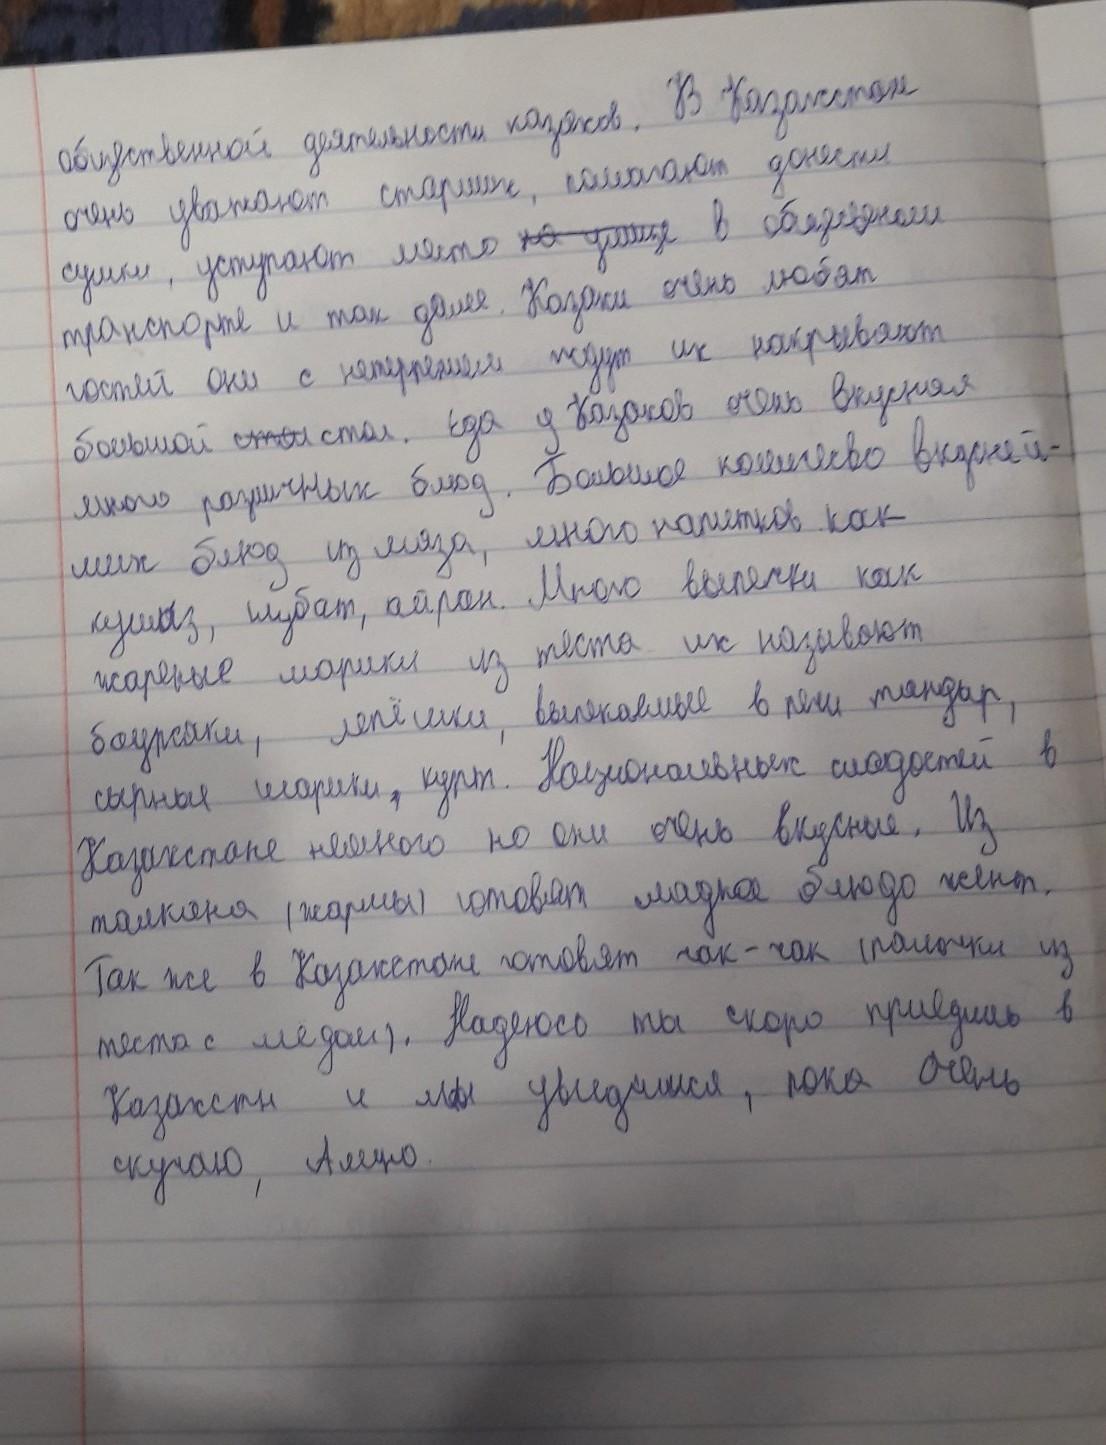 общественной деятельности казахов. В Казахстане
очень уважают старших, помогают донести
сумки, уступают место на улице в общедном
транспорте и так далее. Казахи очень любят
гостей они с нетерпением ждут их накрывают
большой стол. Еда у Казахов очень вкусная
много различных блюд. Большое количесво вкусней-
ших блюд из мяза, много напитков как
кумыз, шубат, айран. Много выпечки как
жареные шарики из теста их называют
баурсаки, лепёшки, выпекаемые в печи тандыр,
сырные шарики, курт. Национальных сладостей в
Казахстане немного но они очень вкусные. Из
талкана (жармы) готовят сладкое блюдо жент.
Так же в Казахстане готовят чак-чак (палочки из
теста с мёдом). Надеюсь ты скоро приедишь в
Казахстн и мы увидимся, пока очень
скучаю,